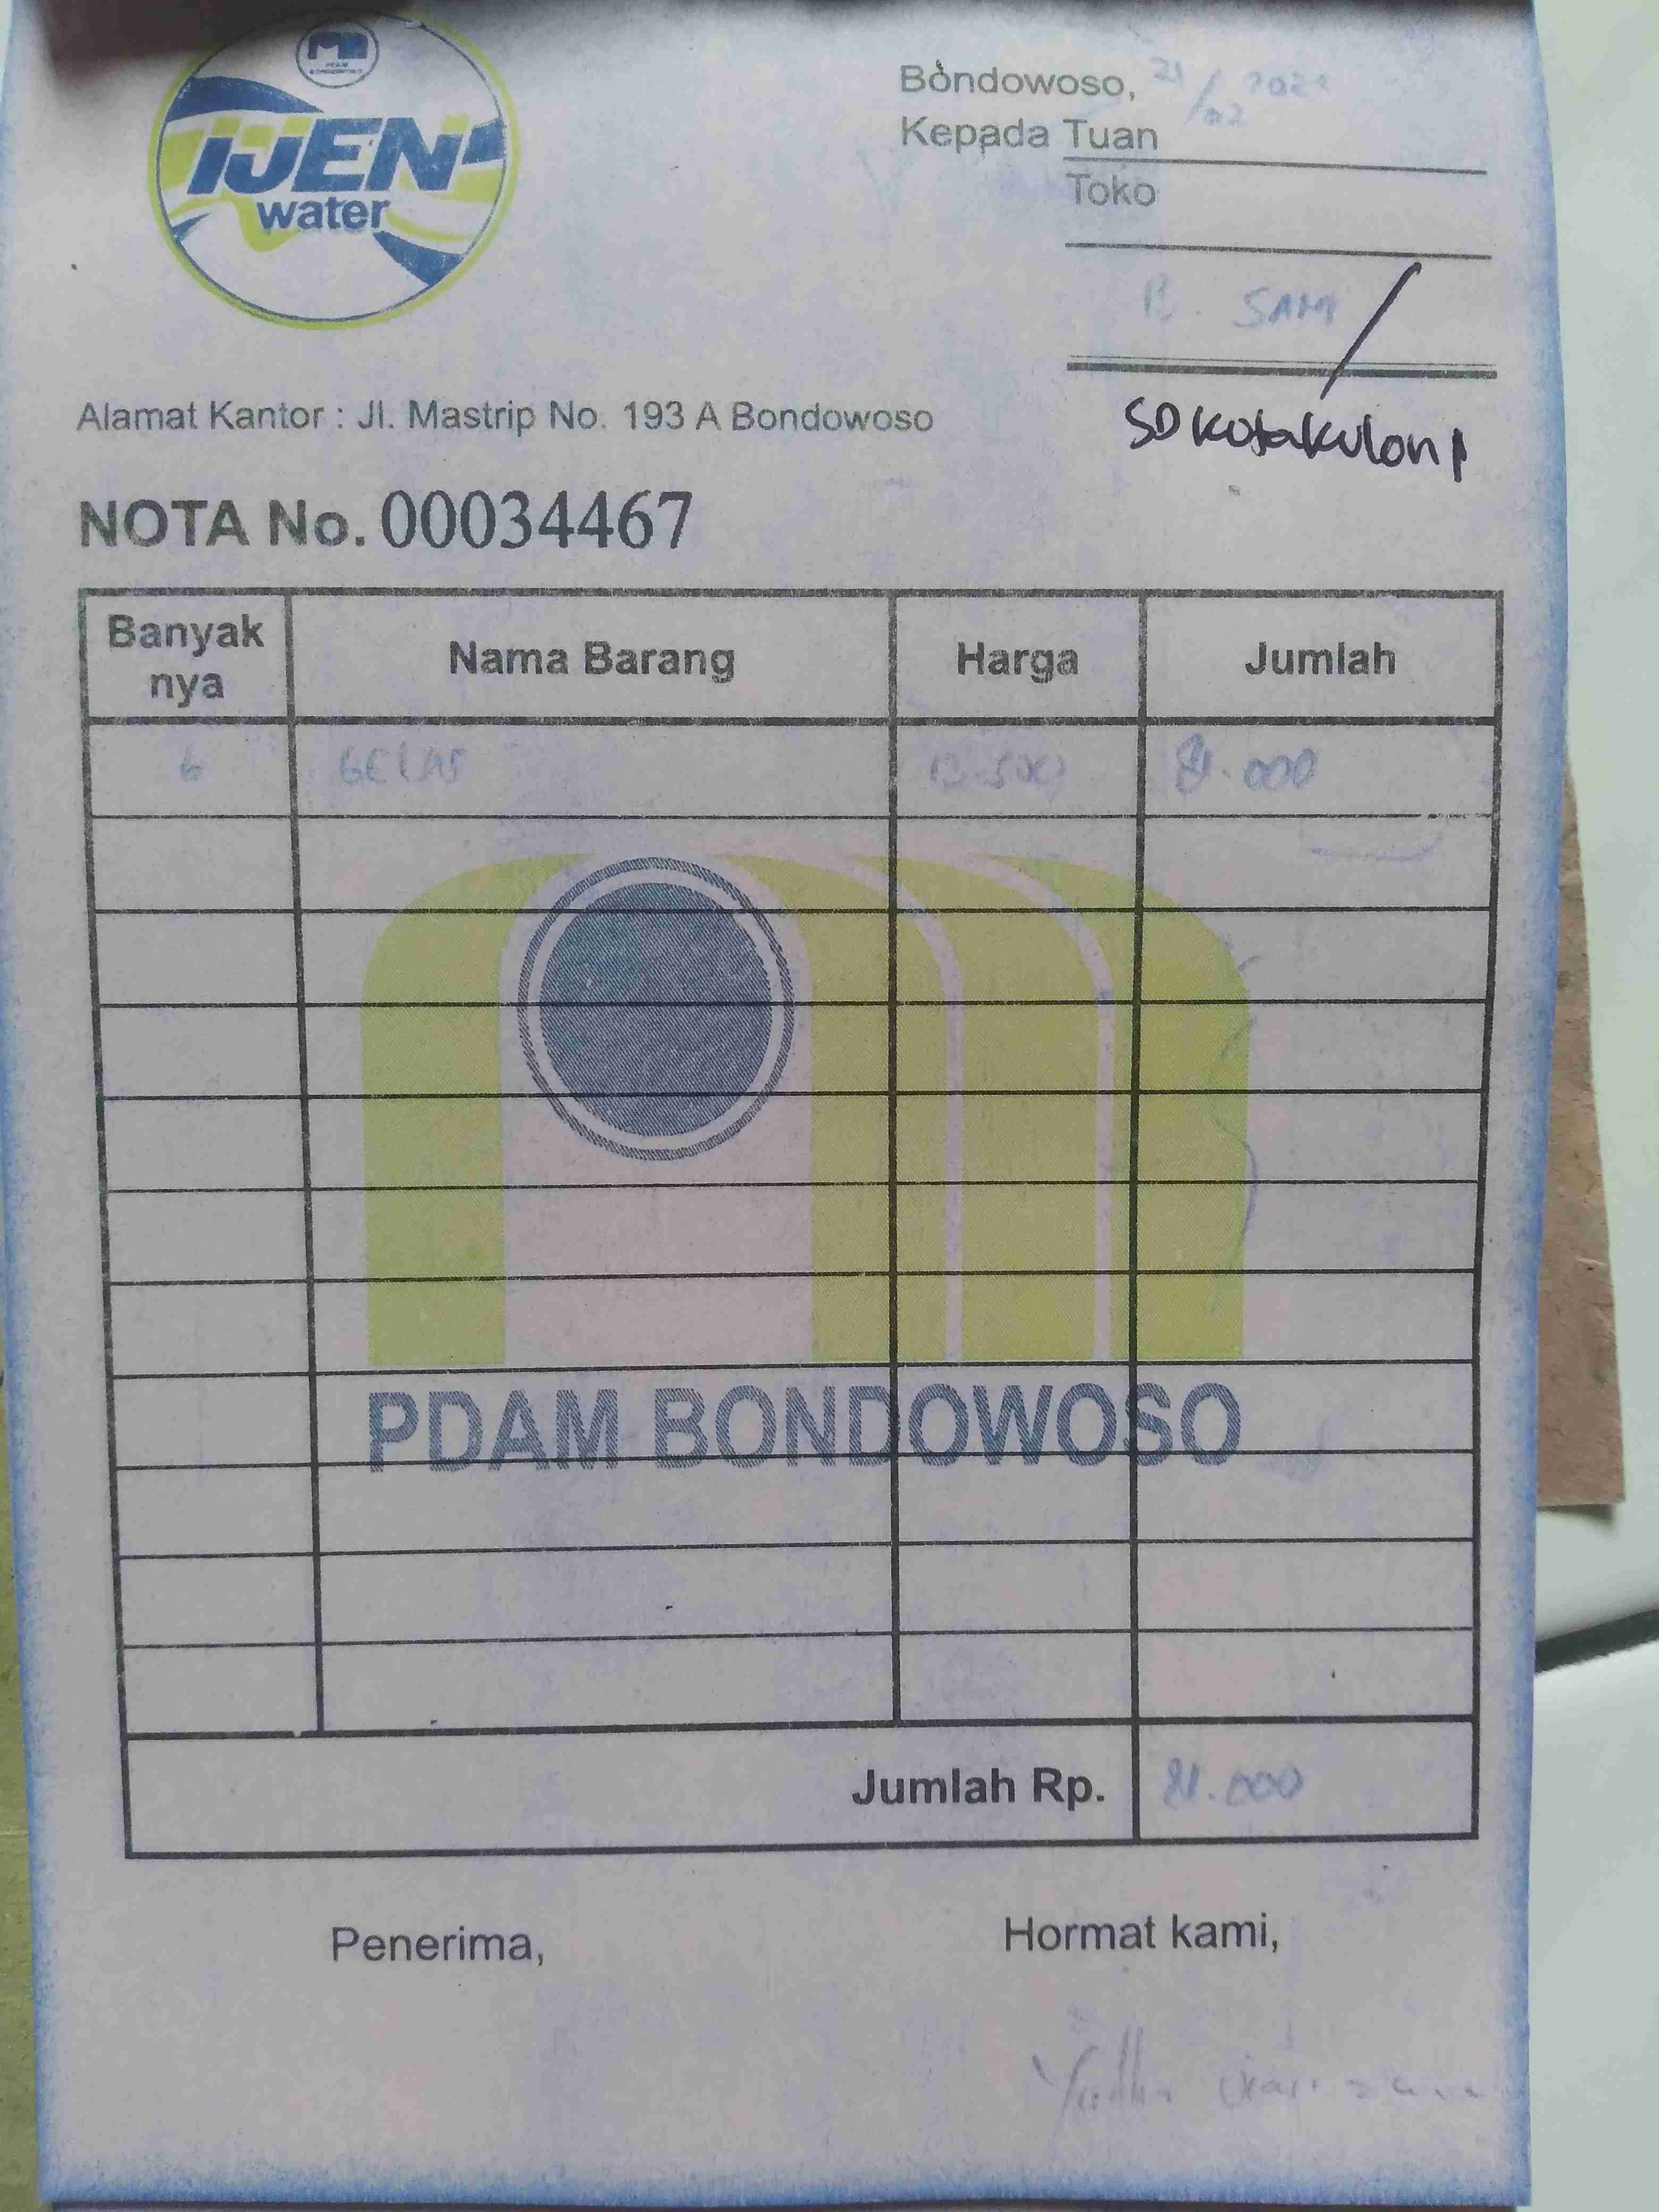 PDAM
BONDOWOSO
IJEN
water
Bondowoso, 21/02 2022
Kepada Tuan
Toko
B. SAM
SD Kotakulon 1
Alamat Kantor : Jl. Mastrip No. 193 A Bondowoso
NOTA No. 00034467
Banyak nya Nama Barang Harga Jumlah
6 GELAS 13.500 81.000
PDAM BONDOWOSO
Jumlah Rp. 81.000
Penerima, Hormat kami,